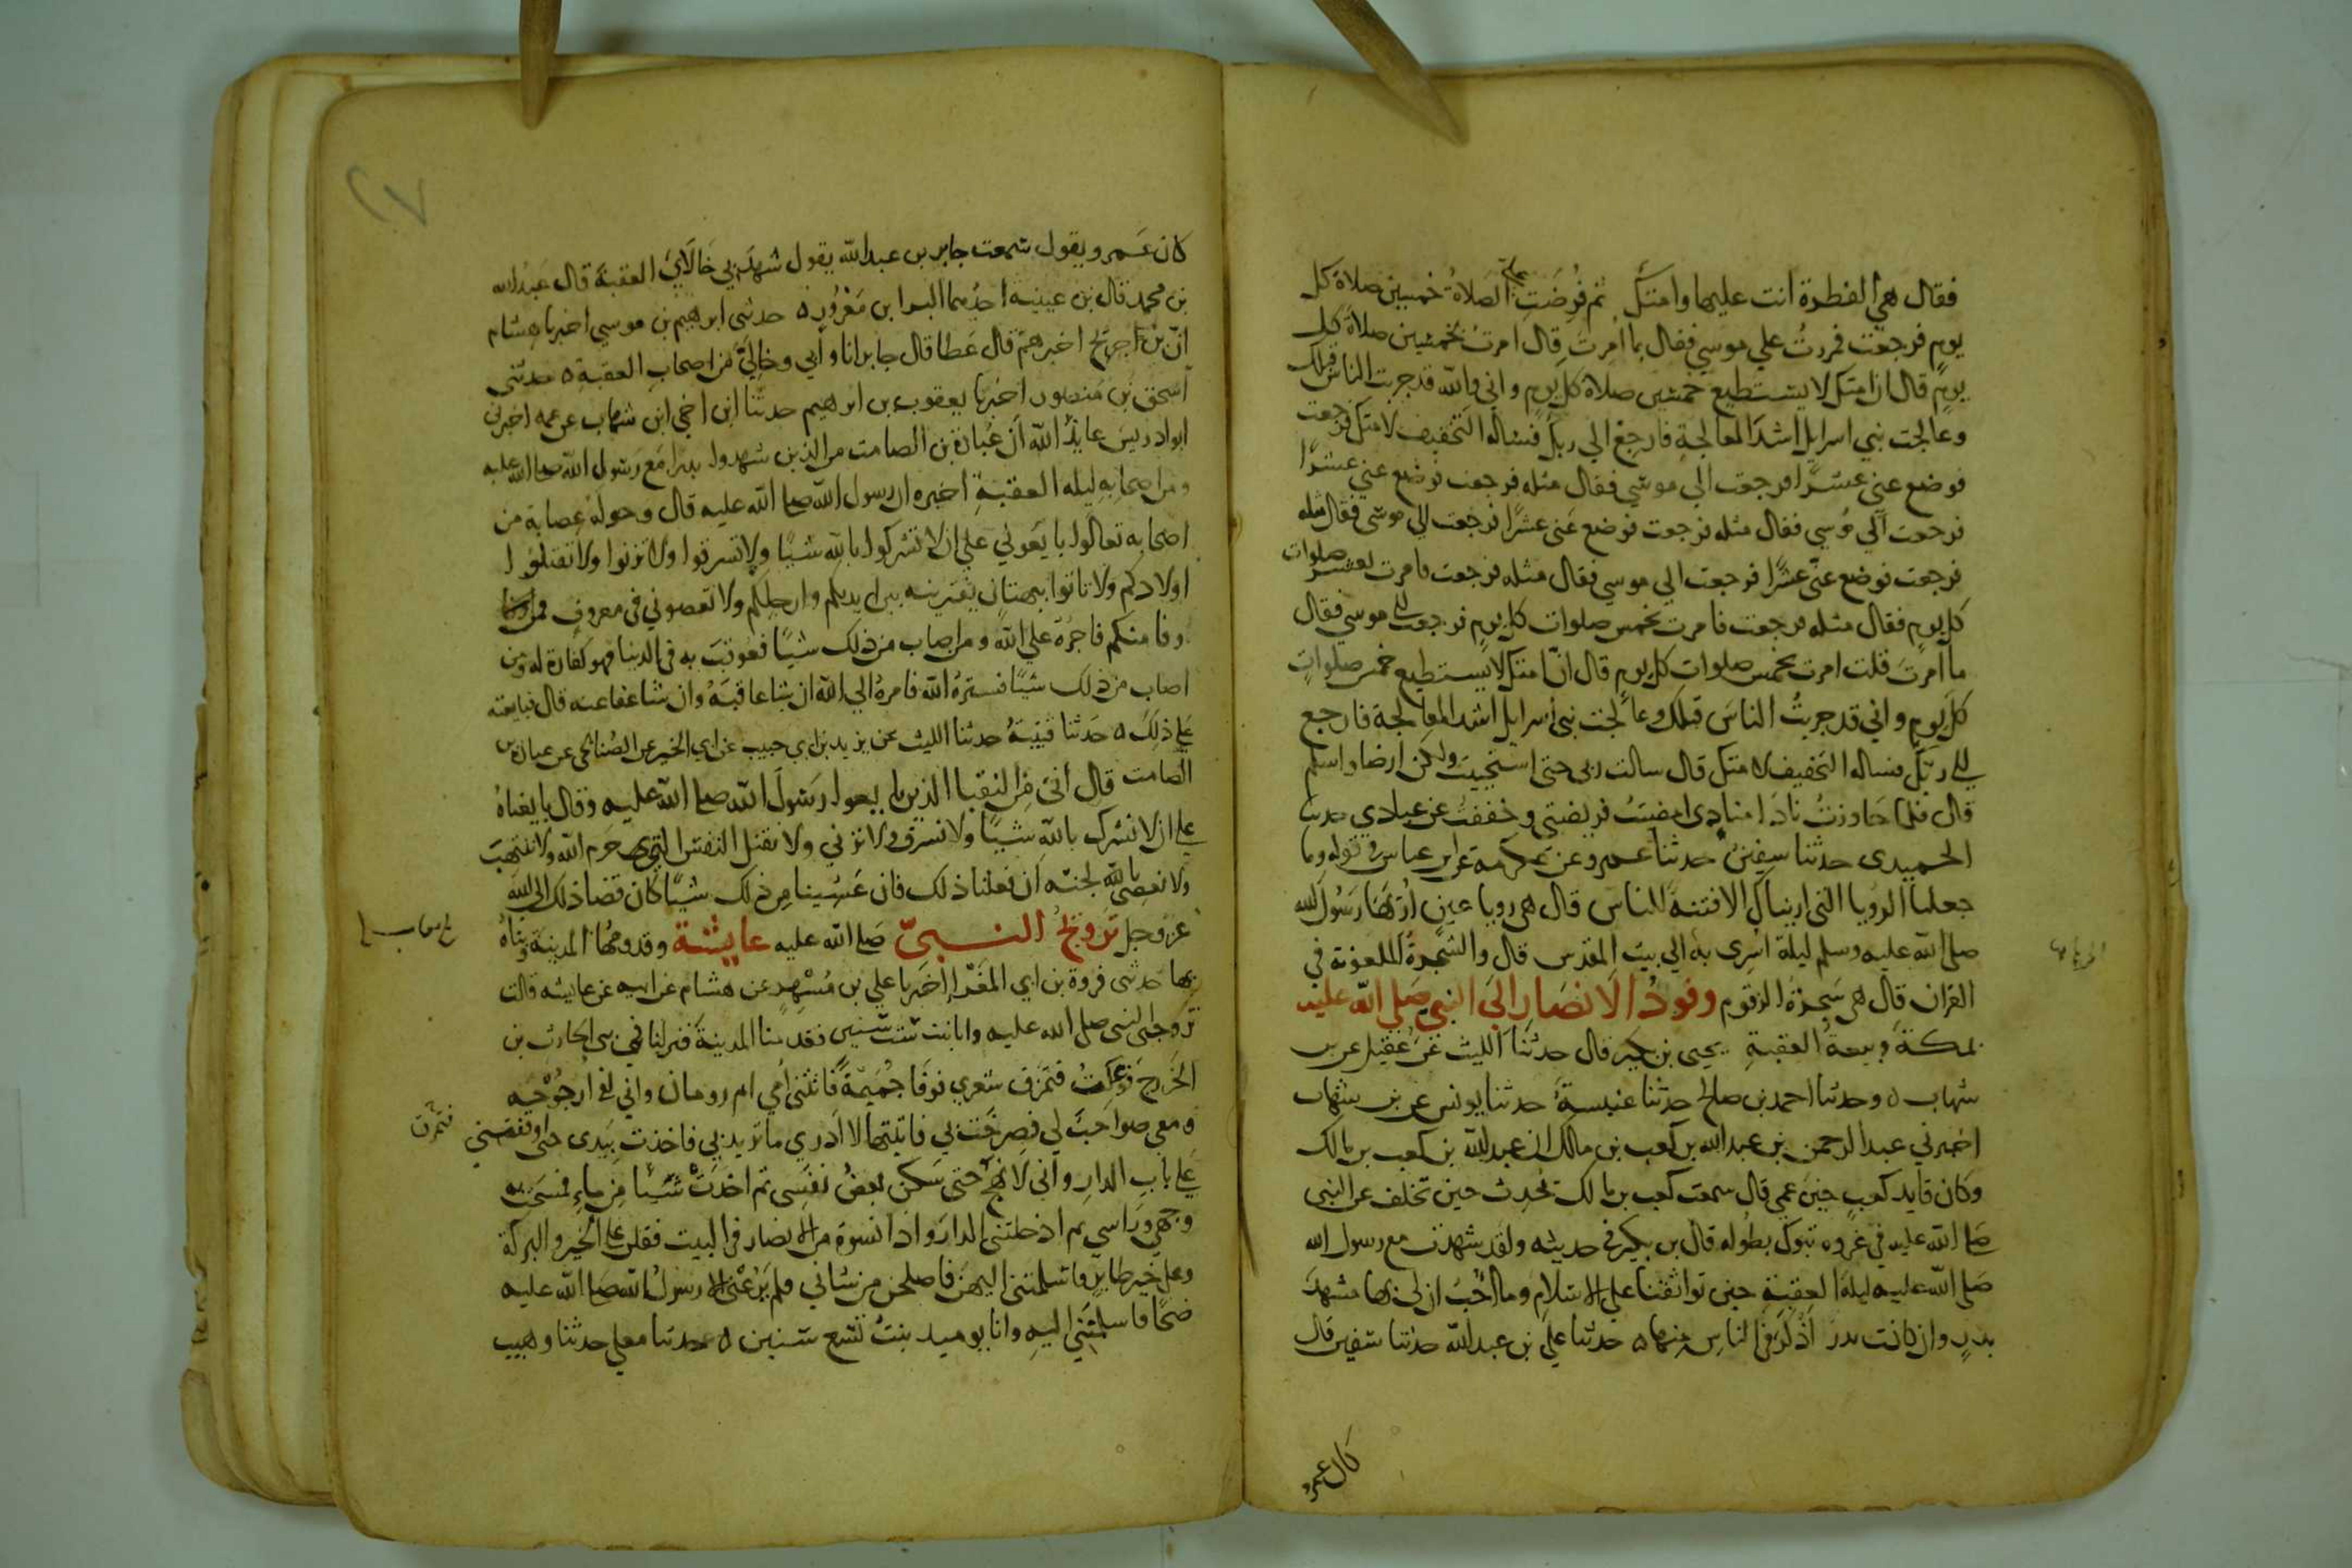 فقال هي الفطرة انت عليها وامتك ثم فرضت علي الصلاة خمسين صلاة كل
يوم فرجعت فمررت علي موسي فقال بما امرت قال امرت بخمسين صلاة كل
يوم قال ان امتك لا يستطيع خمسين صلاة كل يوم واني والله قد جربت الناس قبلك
وعالجت بني اسرايل اشد المعالجة فارجع الي ربك فساله التخفيف لامتك فرجعت
فوضع عني عشرا فرجعت الي موسي فقال مثله فرجعت فوضع عني عشرا
فرجعت الي موسي فقال مثله فرجعت فوضع عني عشرا فرجعت الي موسي فقال مثله
فرجعت فوضع عني عشرا فرجعت الي موسي فقال مثله فرجعت فامرت بعشر صلوات
كل يوم فقال مثله فرجعت فامرت بخمس صلوات كل يوم فرجعت الي موسي فقال
ما امرت قلت امرت بخمس صلوات كل يوم قال ان امتك لا يستطيع خمس صلوات
كل يوم واني قد جربت الناس قبلك وعالجت بني اسرايل اشد المعالجة فارجع
الي ربك فساله التخفيف لامتك قال سالت ربي حتي استحييت ولكن ارضا واسلم
قال فلما جاوزت نادا منادي امضيت فريضتي وخففت عن عبادي حدثنا
الحميدي حدثنا سفين حدثنا عمرو عن عكرمة عن ابن عباس في قوله وما
جعلنا الرويا التي اريناك الا فتنة للناس قال هي رويا عين اريها رسول الله
صلي الله عليه وسلم ليلة اسري به الي بيت المقدس قال والشجرة الملعونة في
القران قال هي شجرة الزقوم وفود الانصار الي النبي صلي الله عليه
بمكة وبيعة العقبة يحيي بن بكير قال حدثنا الليث عن عقيل عن بن
شهاب ه وحدثنا احمد بن صالح حدثنا عنبسة حدثنا يونس عن بن شهاب
اخبرني عبد الرحمن بن عبد الله بن كعب بن مالك ان عبد الله بن كعب بن مالك
وكان قايد كعب حين عمي قال سمعت كعب بن مالك يحدث حين تخلف عن النبي
صلي الله عليه في غزوه تبوك بطوله قال بن بكير في حديثه ولقد شهدت مع رسول الله
صلي الله عليه ليلة العقبة حين تواثقنا علي الاسلام وما احب ان لي بها مشهد
بدر وان كانت بدر اذكر في الناس منها ه حدثنا علي بن عبد الله حدثنا سفين قال
كان عمرو
٢٧
كان عمرو يقول سمعت جابر بن عبد الله يقول شهد بي خالاي العقبة قال عبد الله
بن محمد قال بن عيينه احدهما البرا بن معرور ه حدثني ابرهيم بن موسي اخبرنا هشام
ان بن جريج اخبرهم قال عطا قال جابر انا وابي وخالي من اصحاب العقبة ه حدثني
اسحق بن منصور اخبرنا يعقوب بن ابرهيم حدثنا ابن اخي ابن شهاب عن عمه اخبرني
ابو ادريس عايذ الله ان عبادة بن الصامت من الذين شهدوا بدرا مع رسول الله صلي الله عليه
ومن اصحابه ليله العقبة اخبره ان رسول الله صلي الله عليه قال وحوله عصابة من
اصحابه تعالوا بايعوني علي ان لا تشركوا بالله شيا ولا تسرقوا ولا تزنوا ولا تقتلوا
اولادكم ولا تاتوا ببهتان تفترينه بين ايديكم وارجلكم ولا تعصوني في معروف فمن
وفا منكم فاجره علي الله ومن اصاب من ذلك شيا فعوقب به في الدنيا فهو كفارة له ومن
اصاب من ذلك شيا فستره الله فامره الي الله ان شا عاقبه وان شا عفا عنه قال فبايعته
علي ذلك ه حدثنا قتيبة حدثنا الليث عن يزيد بن ابي حبيب عن ابي الخير عن الصنابحي عن عبادة بن
الصامت قال اني من النقبا الذين بايعوا رسول الله صلي الله عليه وقال بايعناه
علي ان لا نشرك بالله شيا ولا نسرق ولا نزني ولا نقتل النفس التي حرم الله ولا ننتهب
ولا نعصي بالجنه ان فعلنا ذلك فان غشينا من ذلك شيا كان قضا ذلك الي الله
عز وجل تزويج النبي صلي الله عليه عايشة وقدومها المدينة وبناه
بها حدثني فروة بن ابي المغرا اخبرنا علي بن مسهر عن هشام عن ابيه عن عايشه قالت
تزوجني النبي صلي الله عليه وانا بنت ست سنين فقدمنا المدينة فنزلنا في بني الحارث بن
الخزرج فوعكت فتمزق شعري فوفا جميمة فاتتني امي ام رومان واني لفي ارجوحه
ومعي صواحب لي فصرخت بي فاتيتها لا ادري ما تريد بي فاخذت بيدي حتي اوقفتني
فتمرق
علي باب الدار واني لانهج حتي سكن بعض نفسي ثم اخذت شيئا من ماء فمسحت به
وجهي وراسي ثم ادخلتني الدار واذا نسوة من الانصار في البيت فقلن علي الخير والبركة
وعلي خير طاير فاسلمتني اليهن فاصلحن من شاني فلم يرعني الا رسول الله صلي الله عليه
ضحا فاسلمتني اليه وانا يوميد بنت تسع سنين ه حدثنا معلي حدثنا وهيب